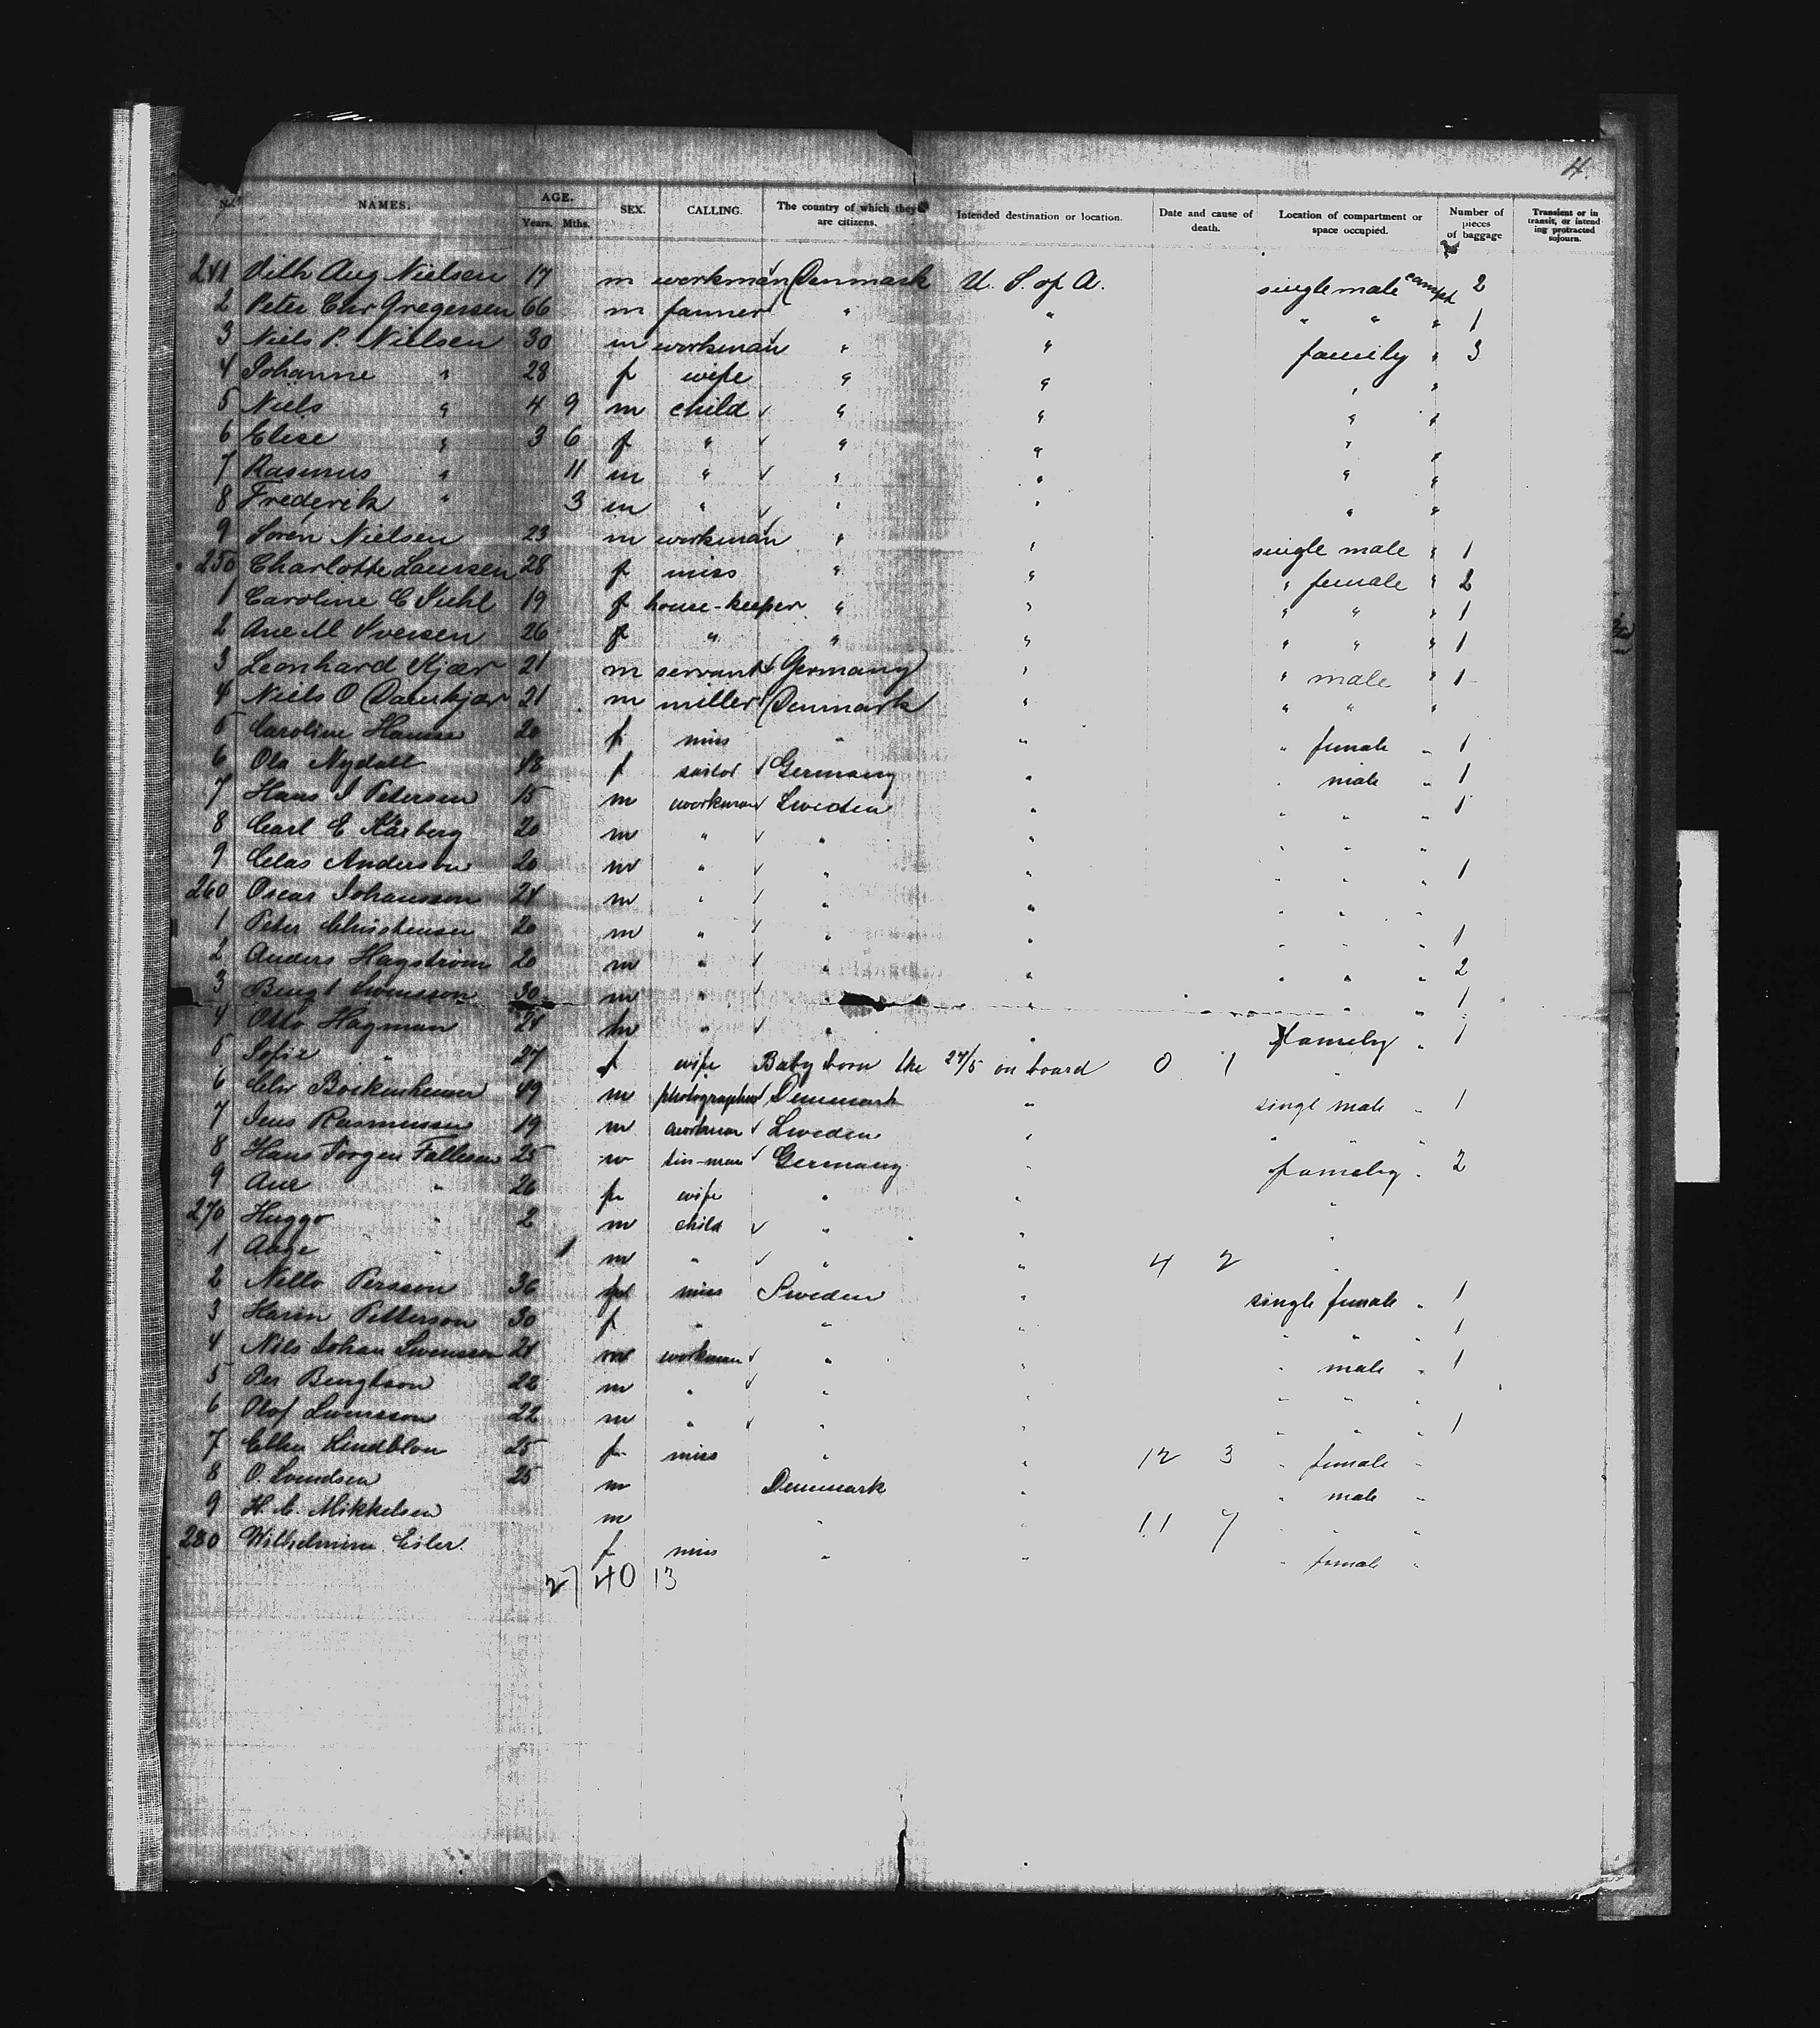 4.
No. NAMES. AGE. Years. Mths. SEX. CALLING. The country of which they are citizens. Intended destination or location. Date and cause of death. Location of compartment or space occupied. Number of pieces of baggage Transient or in transit, or intending protracted sojourn.
241 Vilh Aug Nielsen 17 m workman Denmark U. S. of A. single male compt 2
2 Peter Chr Gregersen 66 m farmer " " " " " 1
3 Niels P. Nielsen 30 m workman " " family " 3
4 Johanne " 28 f wife " " " "
5 Niels " 4 9 m child " " " "
6 Elise " 3 6 f " " " " "
7 Rasmus " 11 m " " " " "
8 Frederik " 3 m " " " " "
9 Soren Nielsen 23 m workman " " single male " 1
250 Charlotte Laursen 28 f miss " " " female " 2
1 Caroline C 19 f house-keeper " " " " " 1
2 Ane M Iversen 26 f " " " " " " 1
3 Leonhard Kjær 21 m servant Germany " " male " 1
4 Niels O Damkjær 21 m miller Denmark " " " "
5 Caroline Hansen 20 f miss " " " female " 1
6 Ola Nydall 48 f sailor Germany " " male " 1
7 Hans J Petersen 15 m workman Sweden " " " " 1
8 Carl E Kärberg 20 m " " " " " "
9 Clas Anderson 20 m " " " " " " 1
260 Oscar Johansson 24 m " " " " " "
1 Peter Christensen 20 m " " " " " " 1
2 Anders Hagström 20 m " " " " " " 2
3 Bengt Swensson 30 m " " " " " 1
4 Otto Hagman 24 m " " " family " 1
5 Sofie " 27 f wife Baby born the 24/5 on board 0 1 "
6 Chr Bockenheuser 49 m photographer Denmark " singl male " 1
7 Jens Rasmussen 19 m workman Sweden " " " "
8 Hans Jörgen Fallesen 25 m tin-man Germany " family " 2
9 Ane " 26 f wife " " "
270 Huggo " 2 m child " " "
1 Aage " 1 m " " " 4 2 "
2 Nella Persson 36 f miss Sweden " single female " 1
3 Karin Petterson 30 f " " " " " " 1
4 Nils Johan Swensson 24 m workman " " " male " 1
5 Per Bengtson 22 m " " " " " "
6 Olof Swensson 22 m " " " " " " 1
7 Ellen Lindblom 25 f miss " " 12 3 " female "
8 O. Svendsen 25 m Denmark " " male "
9 H. C. Mikkelsen m " " 11 7 " " "
280 Wilhelmine Eisler. f miss " " " female "
27 40 13